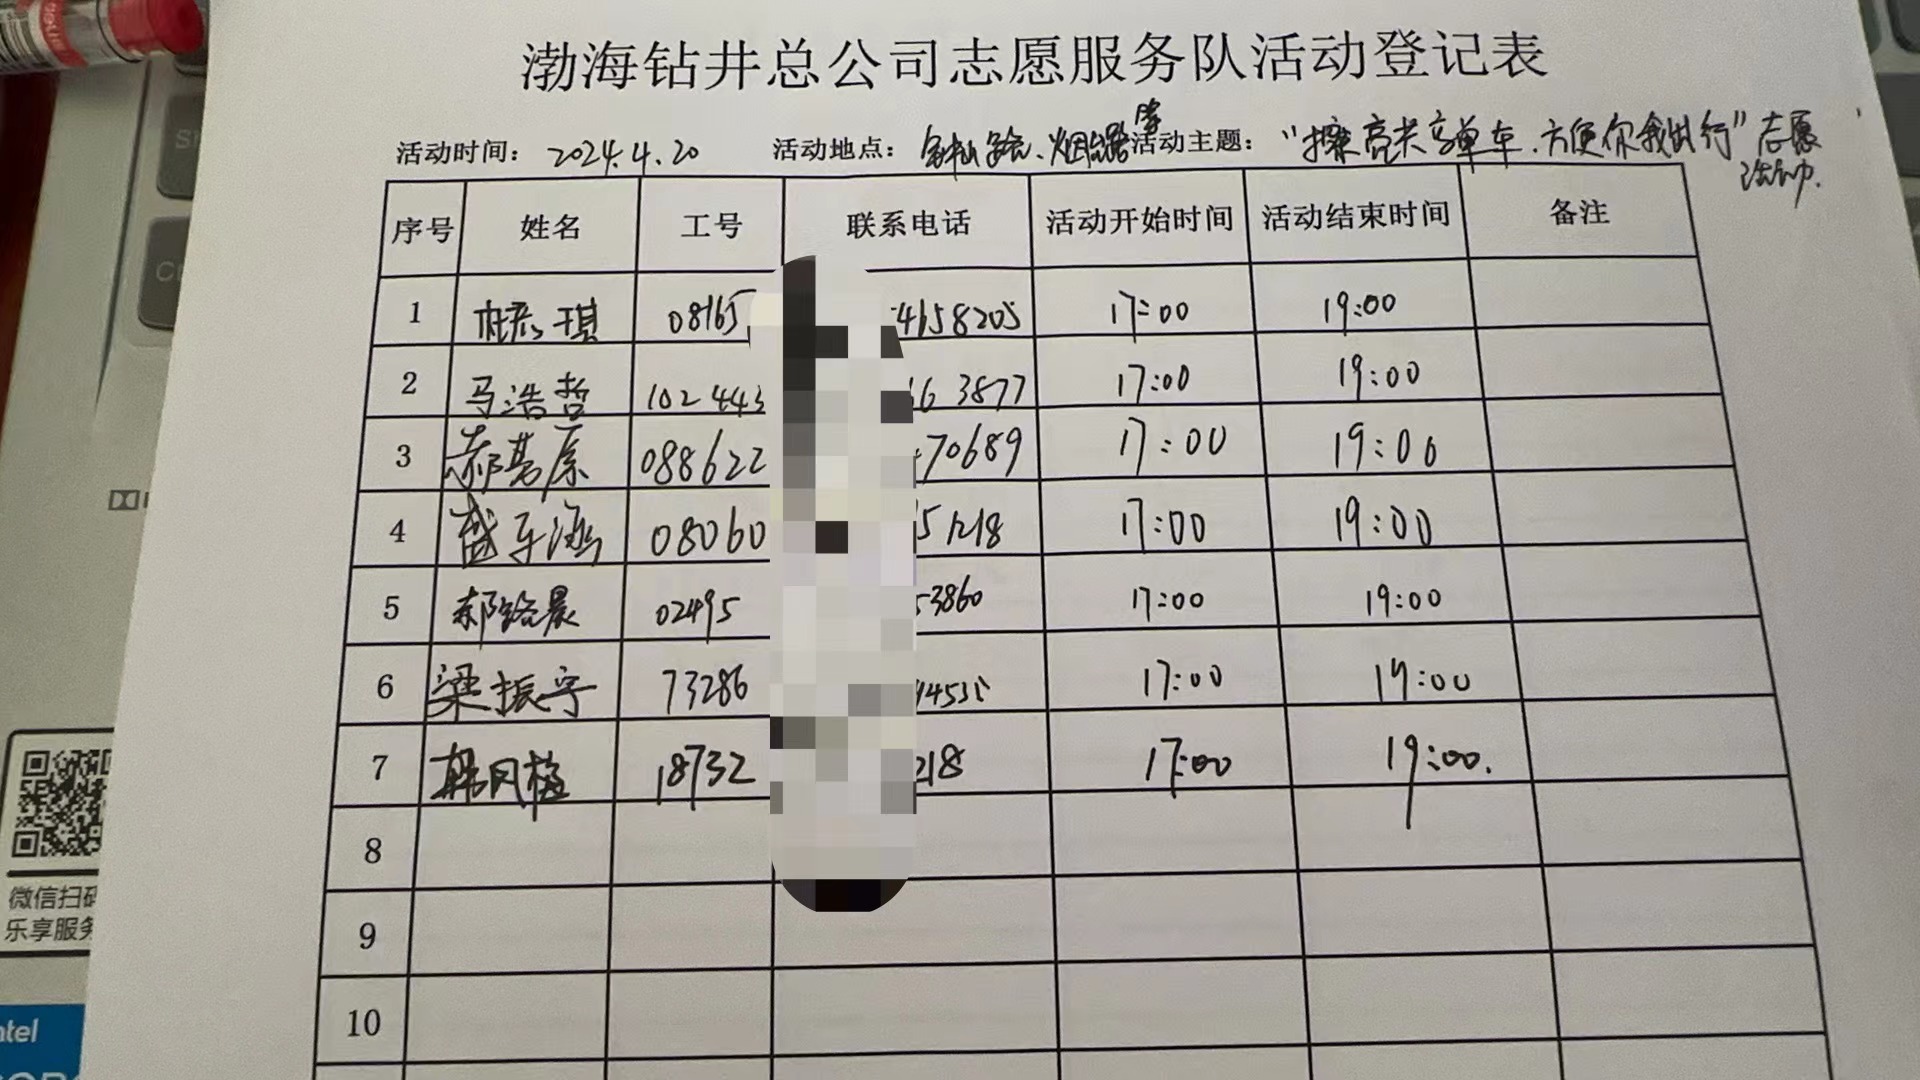 渤海钻井总公司志愿服务队活动登记表
活动时间: 2024.4.20 活动地点: 活动主题: “擦亮共享单车.方便你我出行”志愿活动.
序号 姓名 工号 联系电话 活动开始时间 活动结束时间 备注
1 琪 08165 4658205 17:00 19:00
2 马浩哲 102443 63877 17:00 19:00
3 郝 088622 70689 17:00 19:00
4 盛 涵 08060 51218 17:00 19:00
5 郝 晨 02495 53860 17:00 19:00
6 梁振宇 73286 14535 17:00 19:00
7 韩风梅 18732 218 17:00 19:00.
8
9
10
微信扫码
乐享服务
ntel